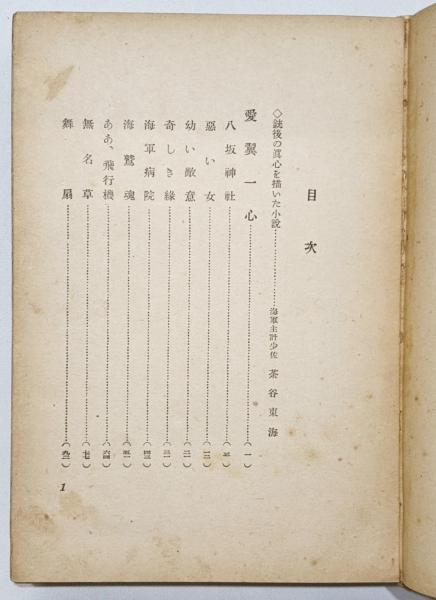 目次
◇銃後の眞心を描いた小説…………海軍主計少佐 茶谷東海
愛翼一心…………(一)
八坂神社…………
惡い女…………
幼い敵意…………
奇しき緣…………
海軍病院…………
海鷲魂…………
ああ、飛行機…………
無名草…………
舞扇…………
1